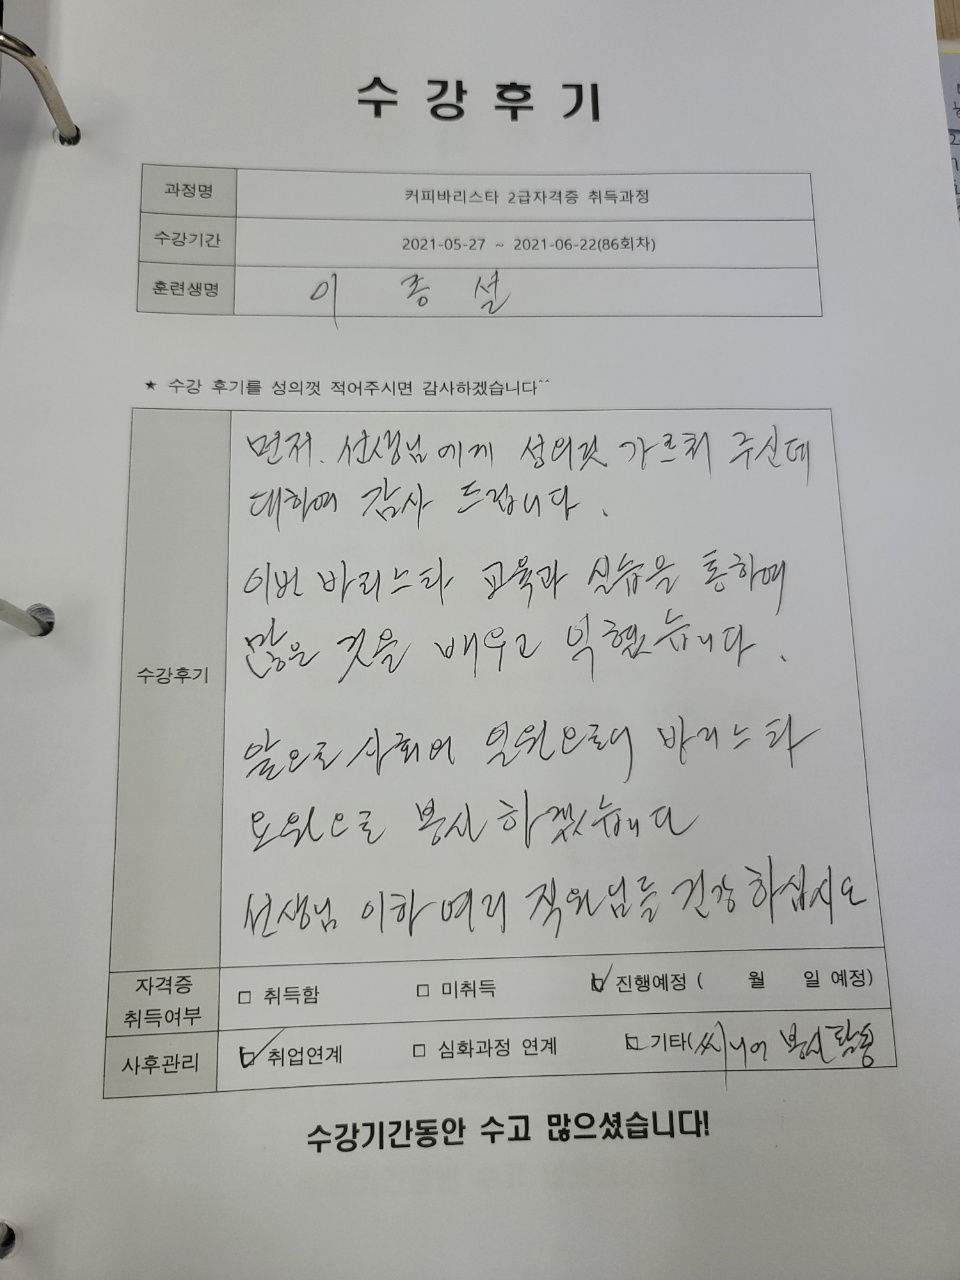 수강후기
과정명 커피바리스타 2급자격증 취득과정
수강기간 2021-05-27 ~ 2021-06-22(86회차)
훈련생명 이 종 설
★ 수강 후기를 성의껏 적어주시면 감사하겠습니다^^
수강후기
먼저. 선생님에게 성의껏 가르쳐 주신데
대하여 감사 드립니다.
이번 바리스타 교육과 실습을 통하여
많은 것을 배우고 익혔습니다.
앞으로 사회에 일원으로서 바리스타
요원으로 봉사 하겠습니다
선생님 이하 여러 직원님들 건강하십시오
자격증 취득여부 □ 취득함 □ 미취득 ☑ 진행예정 ( 월 일 예정)
사후관리 ☑ 취업연계 □ 심화과정 연계 □ 기타(씨니어 봉사활동
수강기간동안 수고 많으셨습니다!